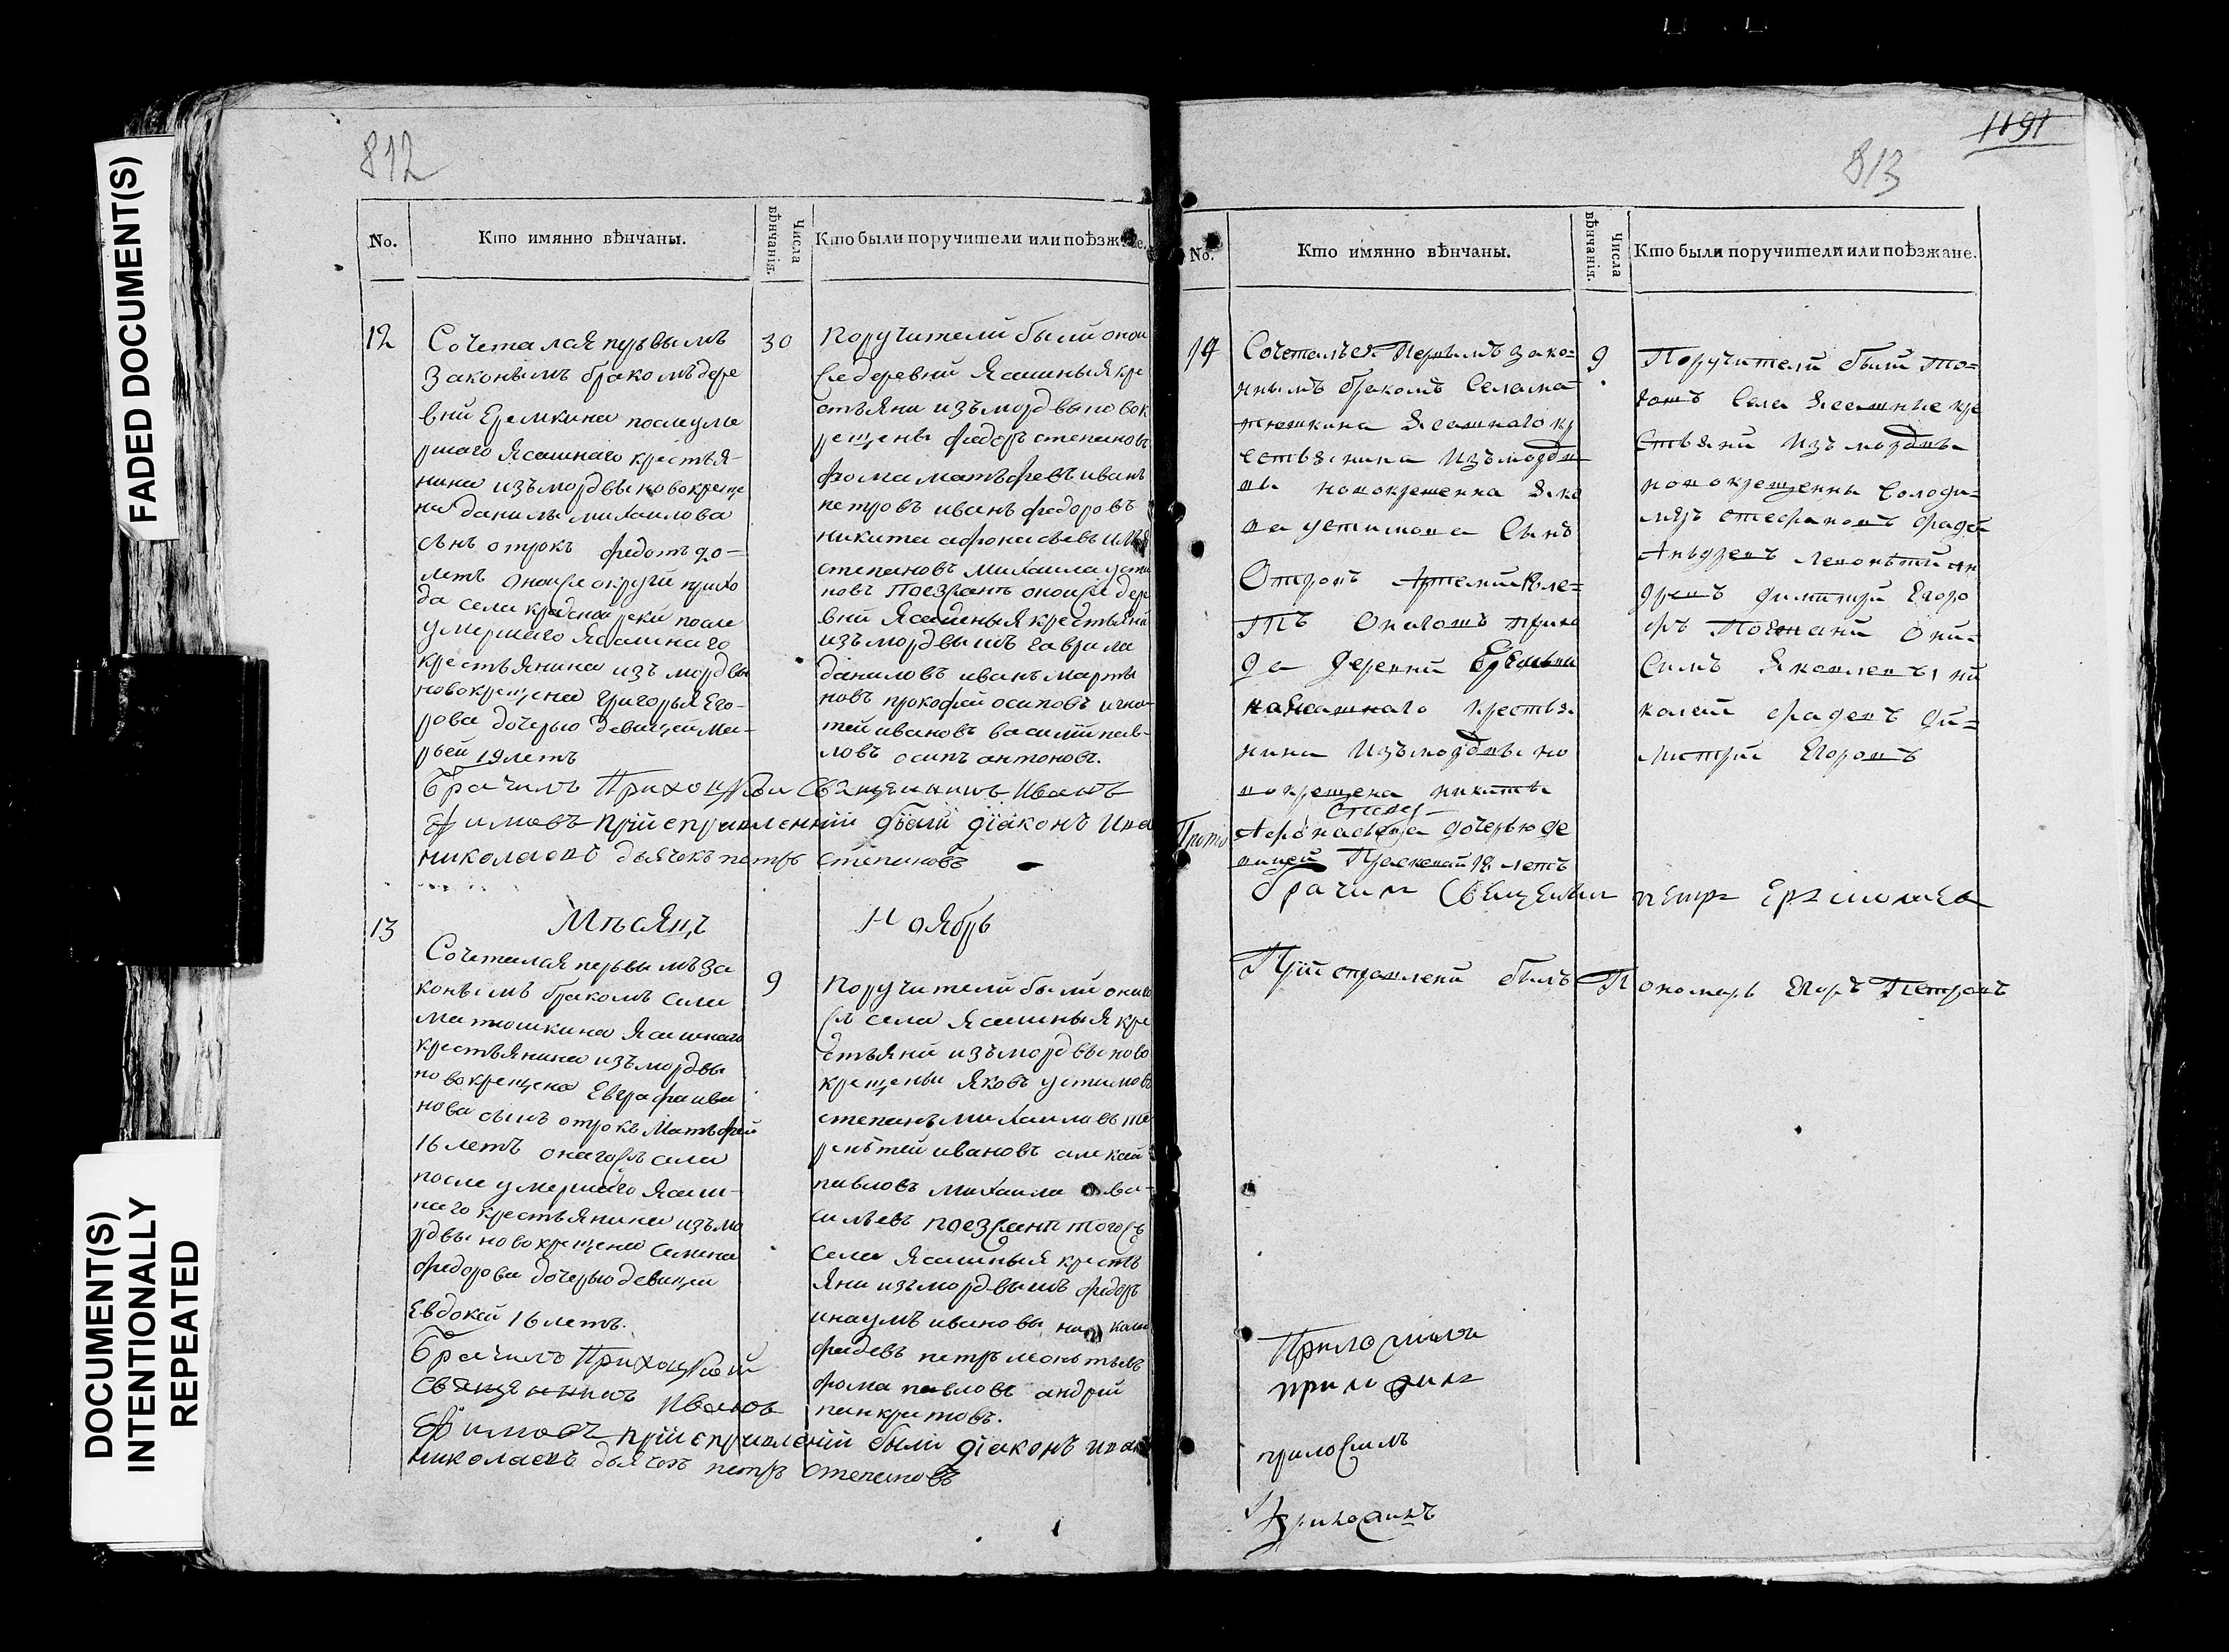 FADED DOCUMENT(S)
DOCUMENT(S)
INTENTIONALLY
REPEATED
812
No.
Кто имянно вѣнчаны.
Числа
вѣнчанія.
Кто были поручители или поѣзжане.
12
Сочеталая первымъ
законымъ бракомъ дере
вни Еремкина послеуме
ршаго Ясашнаго крестья-
нина изъ мордвы новокреще
на данилы михаилова
сынъ отрокъ федотъ 20-
летъ оной же округи прихо
да села красной реки после
умершаго Ясашнаго
крестьянина изъ мордвы
новокрещена григорья Его-
рова дочерью девицей Ма-
рьей 19 летъ
30
Поручители были оной
же деревни Ясашныя кре
стьяни изъ мордвы новок
рещены федоръ степановъ
фома матъфевъ иванъ
петровъ иванъ федоровъ
никита афонасьевъ
степановъ михаила усти
новъ поезжанъ оной же дер
вни Ясашныя крестьяни
изъ мордвы шъ гаврила
даниловъ иванъ марты
новъ прокофей осиповъ игна-
тей ивановъ василий пав-
ловъ осипъ антоновъ.
Брачилъ Приходской Священникъ Иванъ
Ефимовъ при справлении были дiаконъ Ива
николаевъ дьячекъ петръ степановъ
13
Мѣсяцъ Ноябрь
Сочеталая первымъ за
конымъ бракомъ села
матюшкина Ясашнаго
крестьянина изъ мордвы
новокрещена Евграфа ива
нова сынъ отрокъ Матъфей
16 летъ онагожъ села
после умершаго Ясаш-
наго крестьянина изъ мо
рдвы новокрещена Семена
федорова дочерью девицей
Евдокей 16 летъ.
9
Поручители были онаго
жъ села Ясашныя кре
стьяни изъ мордвы ново
крещены Яковъ устимовъ
степанъ михаиловъ те
рентей ивановъ алексей
павловъ михаила ва-
сильевъ поезжани тогожъ
села Ясашныя кресть
яни изъ мордвы шъ федоръ
инаумъ ивановы
фадевъ петръ леонтьевъ
фома павловъ андрей
панкратовъ.
Брачилъ Приходской
Священникъ Иванъ
Ефимовъ при справлении были дiаконъ Иван
николаевъ дьячекъ петръ степановъ
1191
813
No.
Кто имянно вѣнчаны.
Числа
вѣнчанія.
Кто были поручители или поѣзжане.
14
Сочетался Первымъ зако=
ннымъ бракомъ Села ма=
тюшкина Ясашнаго кр
естьянина Изъ мордв
вы новокрещенна Яко
ва устимова Сынъ
Отрокъ Артемий летъ
Онагожъ прихо
да деревни Еремки
на Ясашнаго крестья
нина Изъ мордвы но
вокрещена никиты
Афонасьева дочерью де
вицей Прасковьей 18 летъ
9
Поручители были то=
гожъ Села Ясашные кре
стьяни Изъ мордвы
новокрещенны Володи=
меръ стефановъ фаде
Андреевъ леонътий ан
древъ димитрий Егоро
въ Поезжани Они=
симъ Яковлевъ, ни
колай фадевъ ди=
митрий Егоровъ
Прото
Брачилъ Священни петръ Ермолаев
При справлени былъ Пономарь Егоръ Петровъ
Приложилъ
приложилъ
приложилъ
Приложилъ